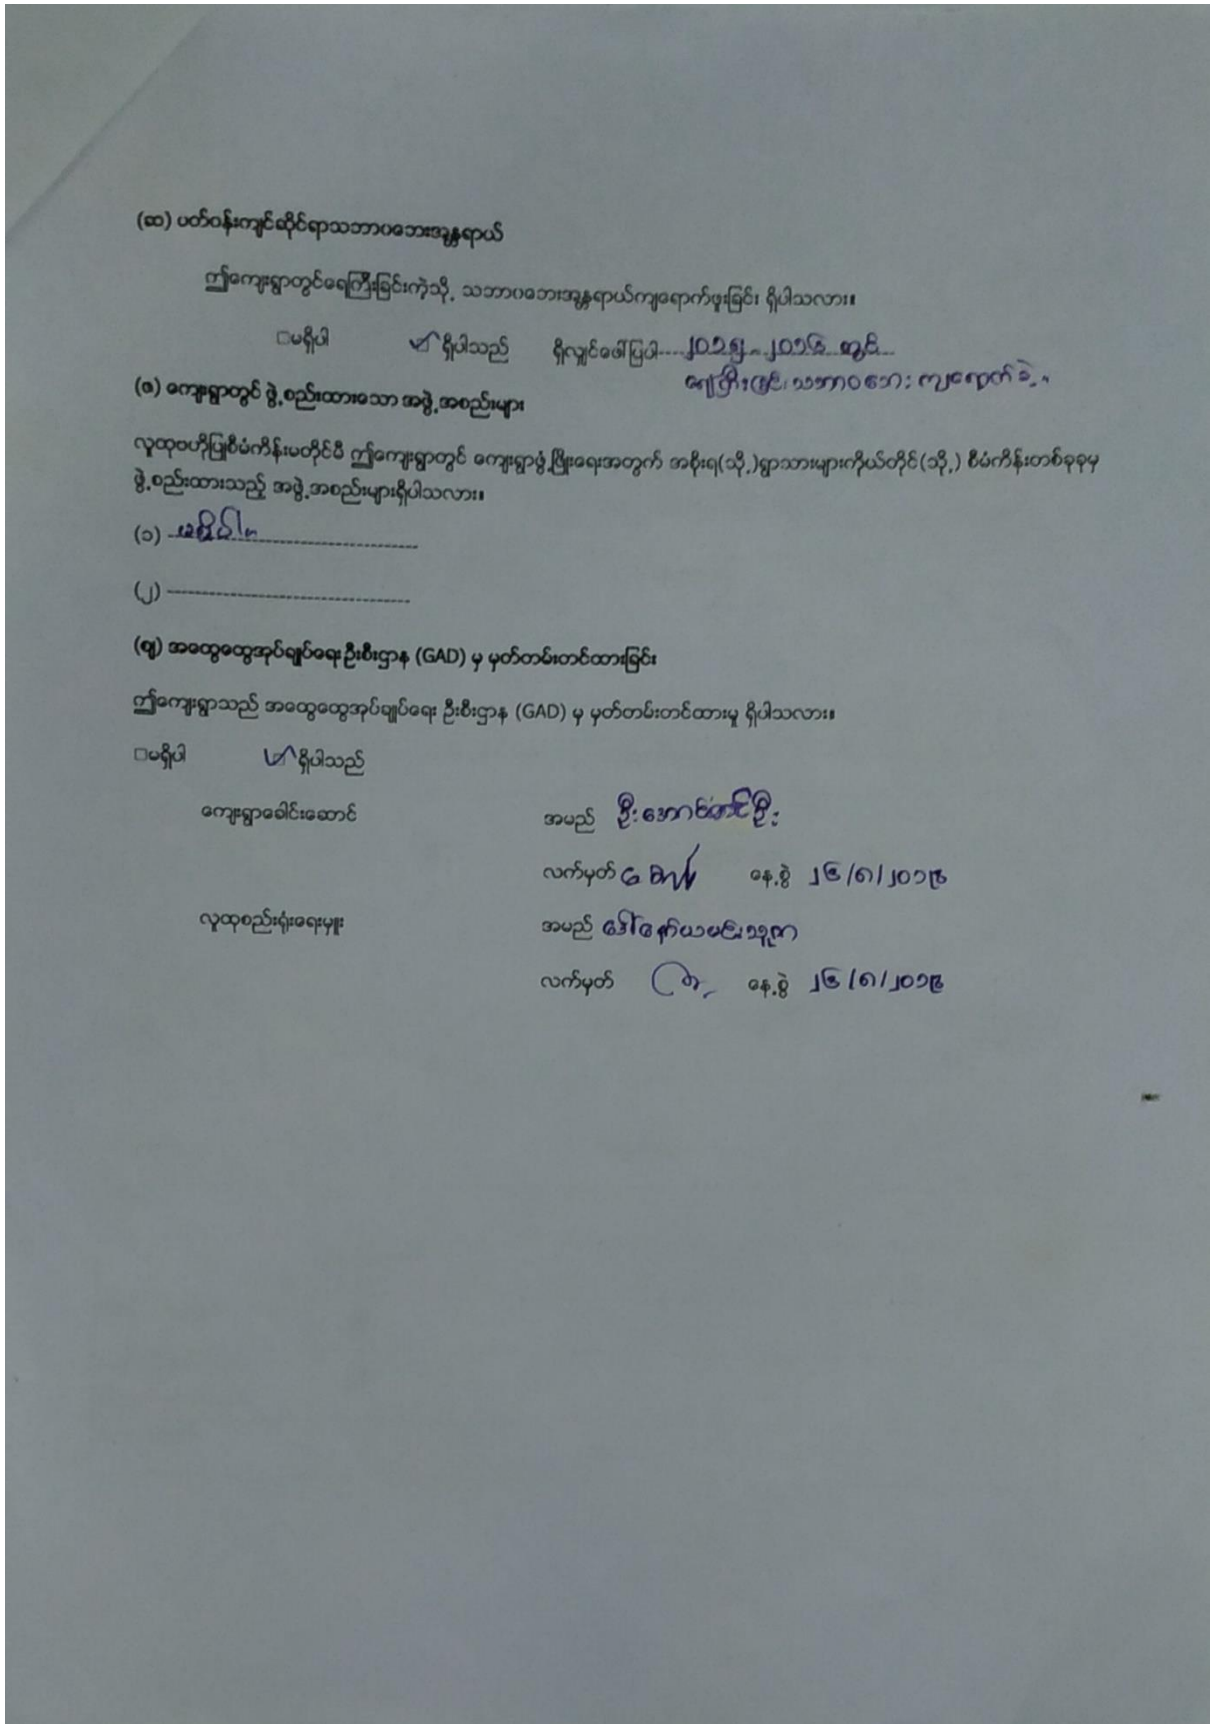 (ဆ) ပတ်ဝန်းကျင်ဆိုင်ရာသဘာပဘေးအန္တရာယ်
ဤကျေးရွာတွင်ရေကြီးခြင်းကဲ့သို့ သဘာပဘေးအန္တရာယ်ကျရောက်ဖူးခြင်း ရှိပါသလား။
□မရှိပါ ☑ရှိပါသည် ရှိလျှင်ဖေါ်ပြပါ....၂၀၁၅ - ၂၀၁၆ တွင်
ရေကြီးခြင်း သဘာဝဘေး ကျရောက်ခဲ့။
(ဇ) ကျေးရွာတွင် ဖွဲ့စည်းထားသော အဖွဲ့အစည်းများ
လူထုဗဟိုပြုစီမံကိန်းမတိုင်မီ ဤကျေးရွာတွင် ကျေးရွာဖွံ့ဖြိုးရေးအတွက် အစိုးရ(သို့)ရွာသားများကိုယ်တိုင်(သို့) စီမံကိန်းတစ်ခုခုမှ
ဖွဲ့စည်းထားသည့် အဖွဲ့အစည်းများရှိပါသလား။
(၁) မရှိပါ။
(၂) --------------------------------
(ဈ) အထွေထွေအုပ်ချုပ်ရေးဦးစီးဌာန (GAD) မှ မှတ်တမ်းတင်ထားခြင်း
ဤကျေးရွာသည် အထွေထွေအုပ်ချုပ်ရေး ဦးစီးဌာန (GAD) မှ မှတ်တမ်းတင်ထားမှု ရှိပါသလား။
□မရှိပါ ☑ရှိပါသည်
ကျေးရွာခေါင်းဆောင် အမည် ဦးအောင်တင်ဦး
လက်မှတ် နေ့စွဲ ၂၆/၈/၂၀၁၉
လူထုစည်းရုံးရေးမှူး အမည် ဒေါ်နော်ယမင်းသူဇာ
လက်မှတ် နေ့စွဲ ၂၆/၈/၂၀၁၉